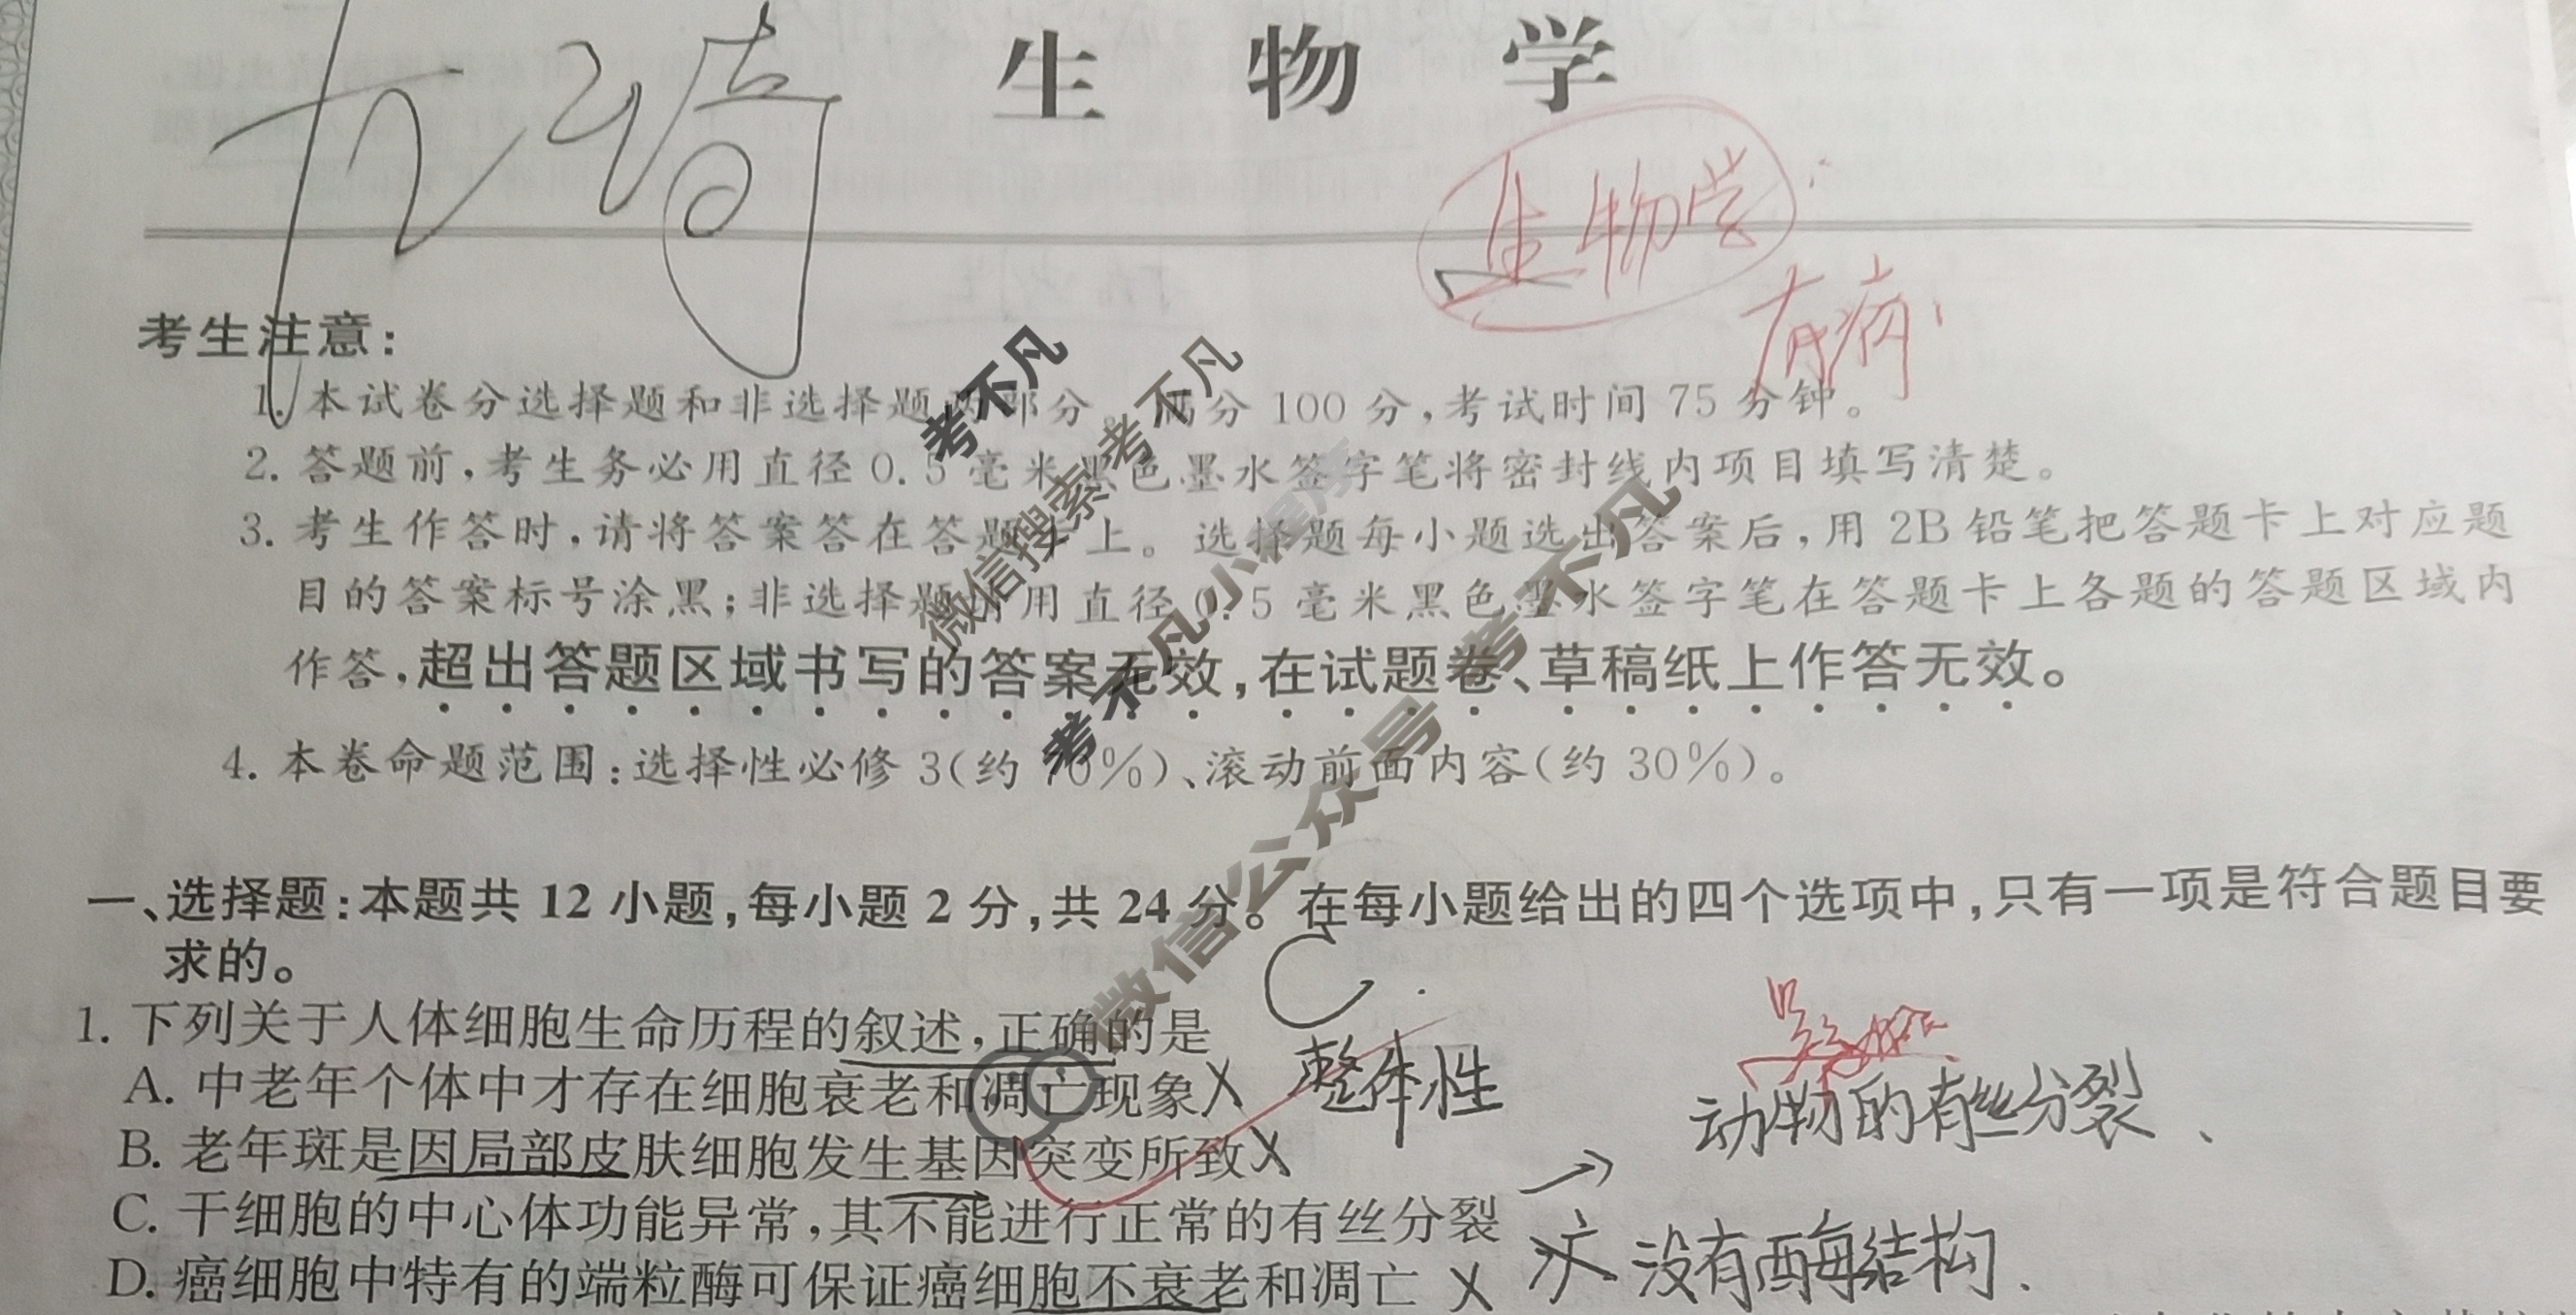 生物学
生物学
有病
考生注意:
1. 本试卷分选择题和非选择题两部分。满分 100 分,考试时间 75 分钟。
2. 答题前,考生务必用直径 0.5 毫米黑色墨水签字笔将密封线内项目填写清楚。
3. 考生作答时,请将答案答在答题卡上。选择题每小题选出答案后,用 2B 铅笔把答题卡上对应题
目的答案标号涂黑;非选择题请用直径 0.5 毫米黑色墨水签字笔在答题卡上各题的答题区域内
作答,超出答题区域书写的答案无效,在试题卷、草稿纸上作答无效。
4. 本卷命题范围:选择性必修 3(约 70%)、滚动前面内容(约 30%)。
考不凡
微信搜索 考不凡
考不凡小程序
微信公众号 考不凡
一、选择题:本题共 12 小题,每小题 2 分,共 24 分。在每小题给出的四个选项中,只有一项是符合题目要
求的。
1. 下列关于人体细胞生命历程的叙述,正确的是 C.
A. 中老年个体中才存在细胞衰老和凋亡现象 X 整体性
动物的有丝分裂、
B. 老年斑是因局部皮肤细胞发生基因突变所致 X
C. 干细胞的中心体功能异常,其不能进行正常的有丝分裂 →
D. 癌细胞中特有的端粒酶可保证癌细胞不衰老和凋亡 X 没有酶结构.